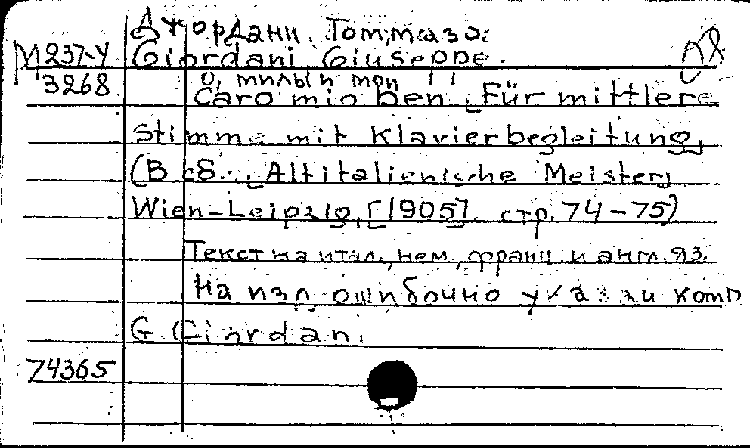 Джордани, Томмазо.
М 237-У Giordani Giuseppe.
3268 О, милый мой
Caro mio ben. Für mittlere
Stimme mit Klavierbegleitung,
(В сб.: Altitalienische Meister,
Wien-Leipzig, [1905], стр. 74-75)
Текст на итал., нем., франц. и англ. яз.
На изд. ошибочно указан комп.
G. Giordani.
74365